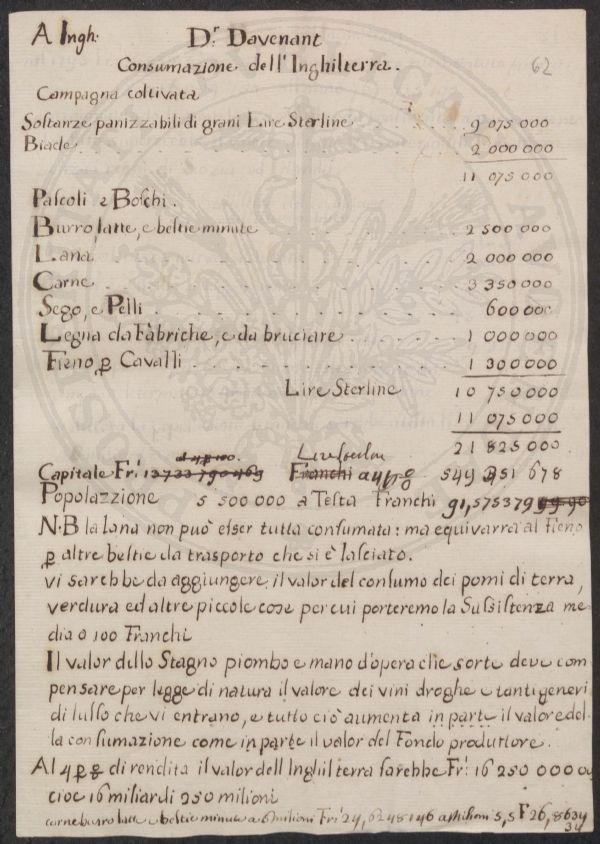 A Ingh:
Dr Davenant
Consumazione dell'Inghilterra.
62
Campagna coltivata
Sostanze panizzabili di grani Lire Sterline . . . . . . . 9 075 000
Biade . . . . . . . 2 000 000
11 075 000
Pascoli e Boschi.
Burro, latte, e bestie minute . . . . . . . 2 500 000
Lana . . . . . . . 2 000 000
Carne . . . . . . . 3 350 000
Sego, e Pelli . . . . . . . 600 000
Legna da Fabriche, e da bruciare . . . . . . . 1 000 000
Fieno p Cavalli . . . . . . . 1 300 000
Lire Sterline 10 750 000
11 075 000
21 825 000
Capitale Fr: 13733790469 Franchi a 4 p% 549 351 678
Popolazzione 5 500 000 a Testa Franchi 91,575379
N.B la lana non può esser tutta consumata: ma equivarrà al Fieno
p altre bestie da trasporto che si è lasciato.
vi sarebbe da aggiungere, il valor del consumo dei pomi di terra,
verdura ed altre piccole cose per cui porteremo la Sussistenza me-
dia a 100 Franchi
Il valor dello Stagno piombo e mano d'opera che sorte deve com
pensare per legge di natura il valore dei vini droghe e tanti generi
di lusso che vi entrano, e tutto ciò aumenta in parte il valore del-
la consumazione come in parte il valor del Fondo produttore.
Al 4 p % di rendita il valor dell Inghilterra sarebbe Fr: 16 250 000 000
cioe 16 miliardi 250 milioni
carne burro latte e bestie minute a 6 milioni Fri 24,6248146 a Milioni 5,5 F 26,8634
34